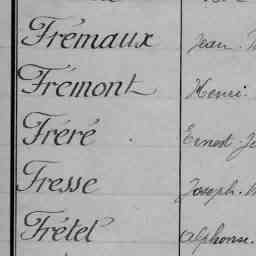 Frémaux Jean
Frémont Henri
Fréré Ernest
Fresse Joseph
Frétel Alphonse